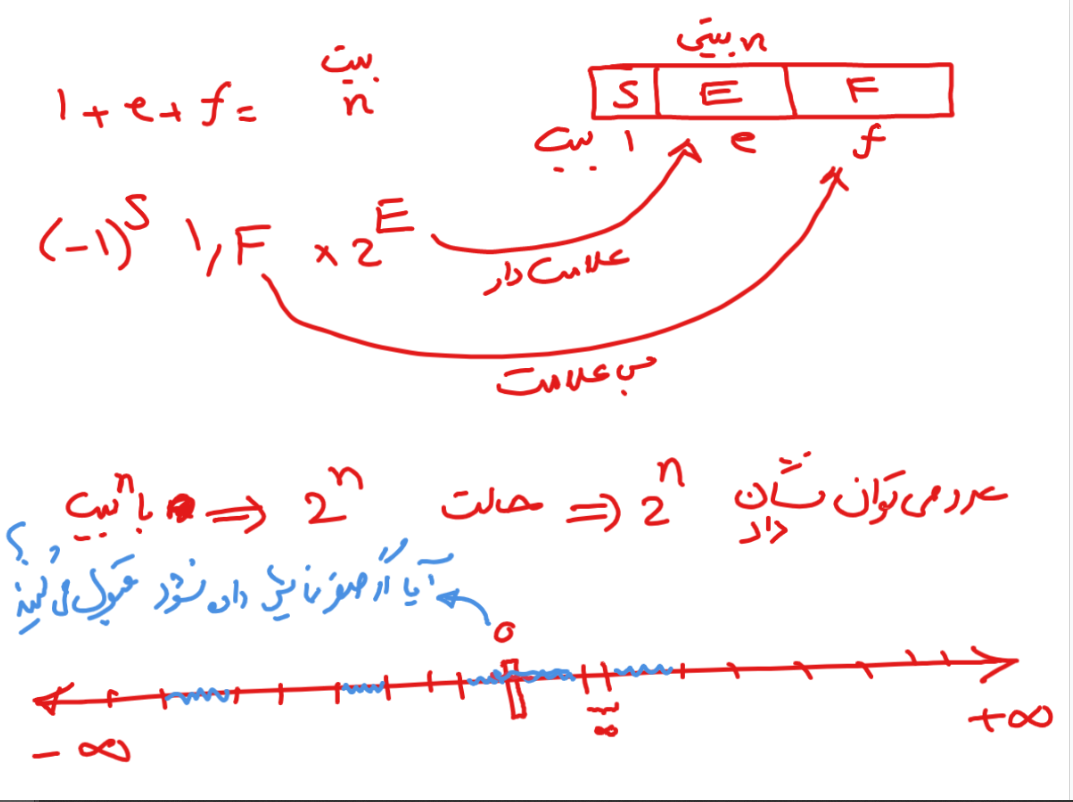 n بیتی
1 + e + f = n بیت
S E F
1 بیت e f
(-1)^S 1,F × 2^E
علامت دار
بی علامت
با n بیت ⇒ 2^n حالت ⇒ 2^n عدد می توان نشان داد
آیا اگر صفر نمایش داده نشود قبول می کنید؟
0
∞
- ∞ +∞